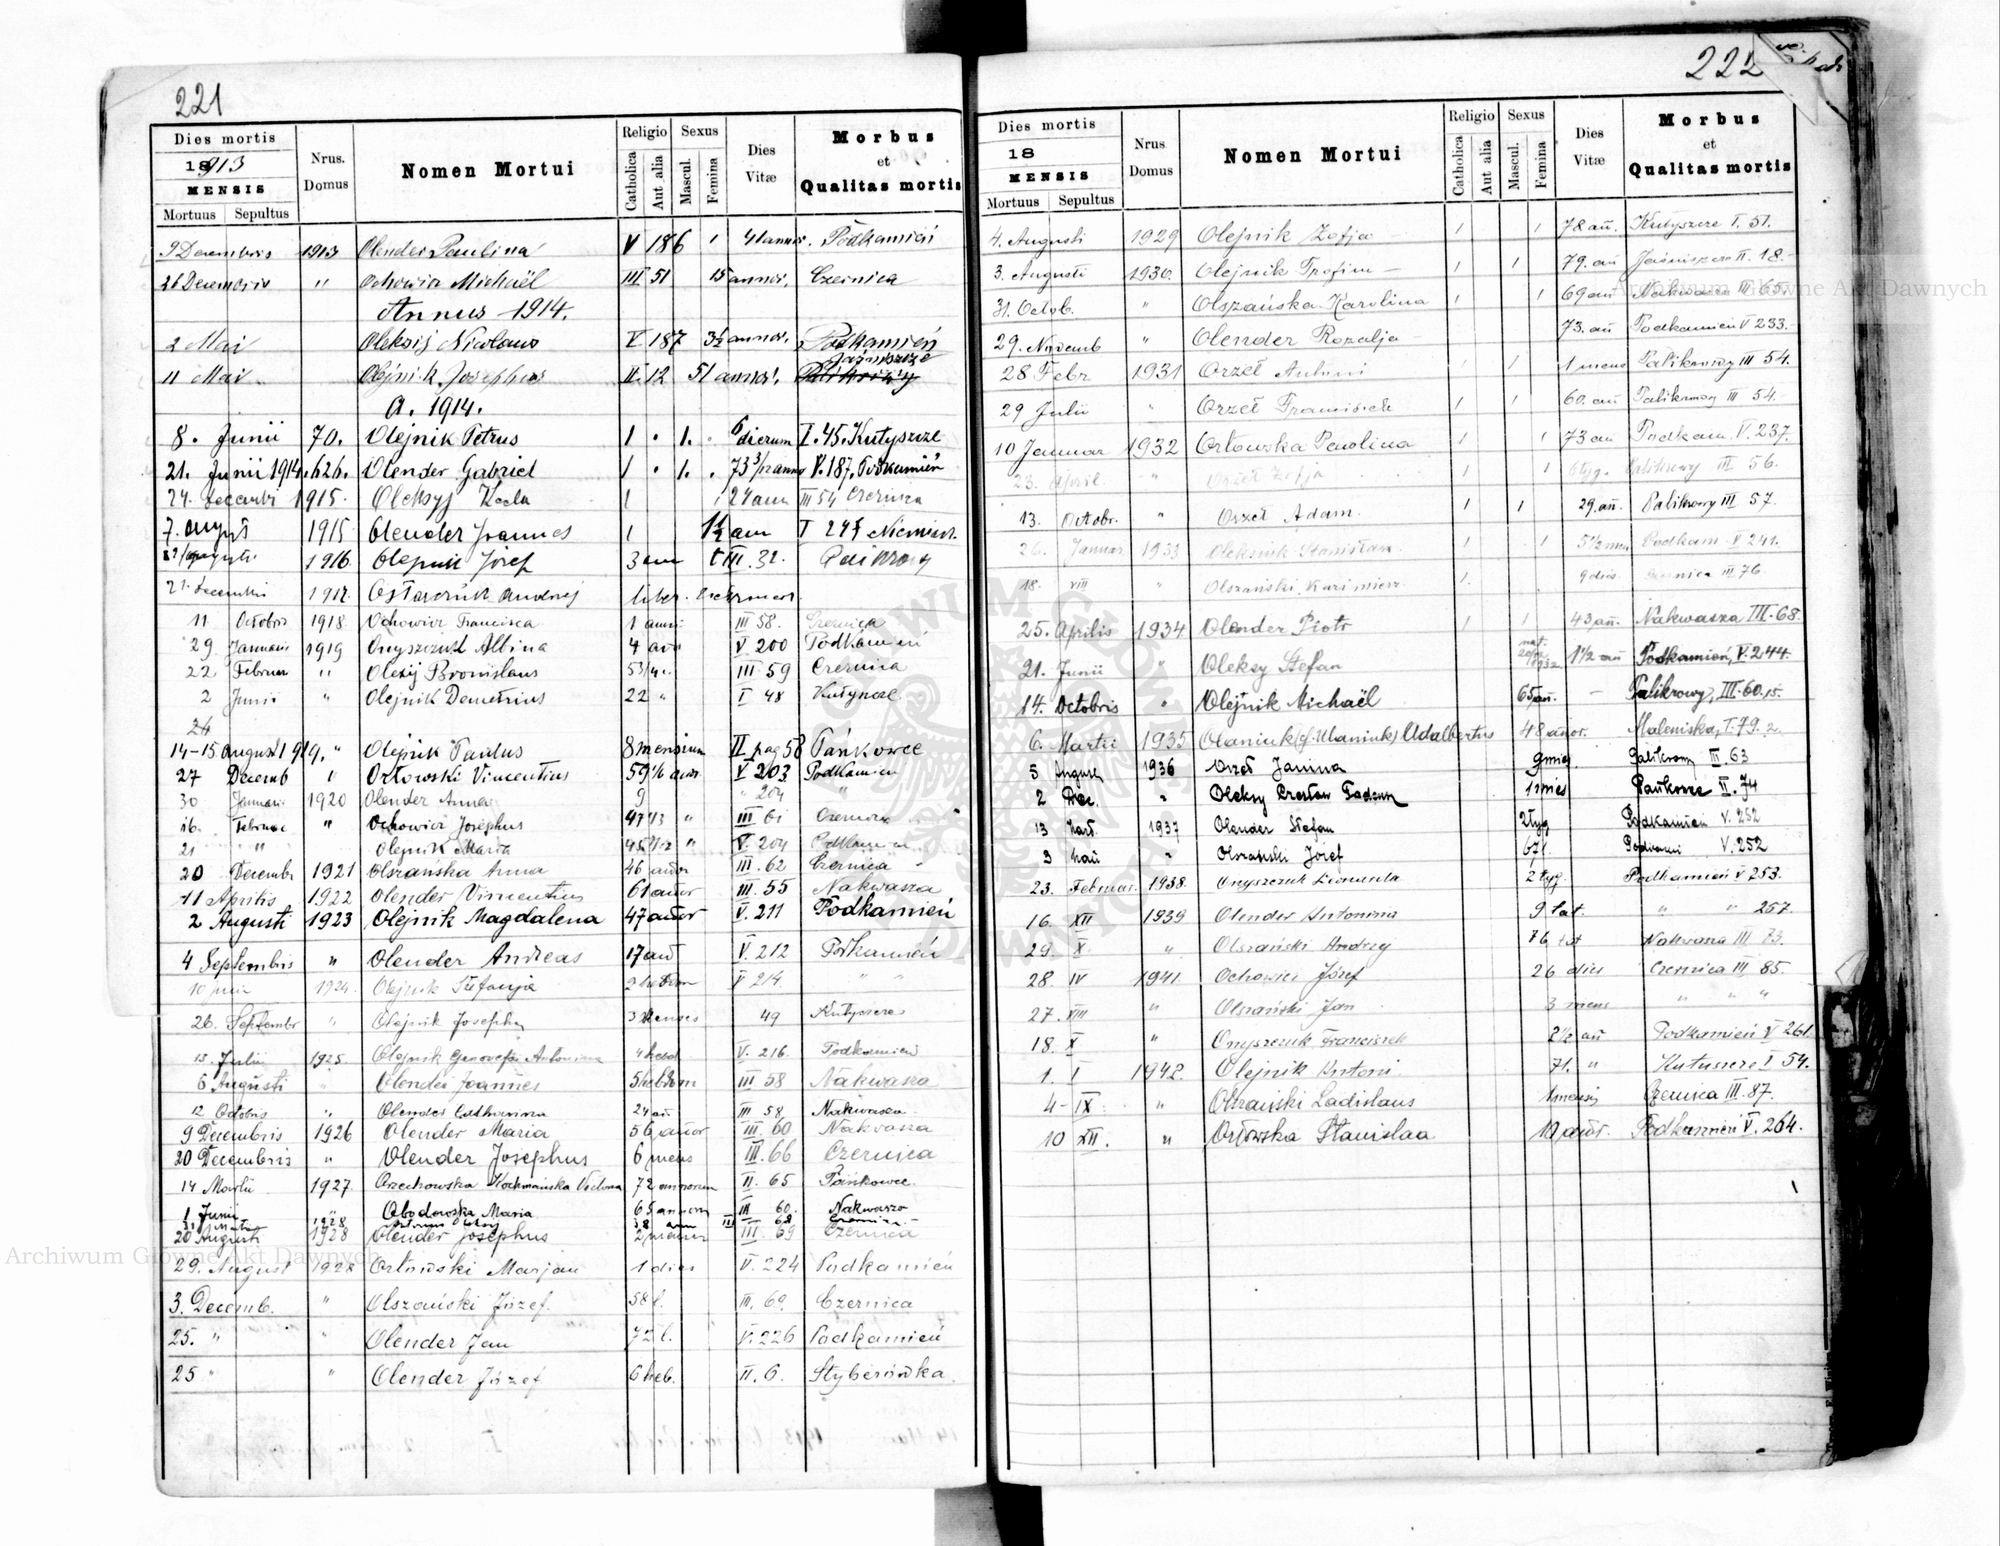 221
Dies mortis
1913
MENSIS
Mortuus Sepultus
Nrus. Domus
Nomen Mortui
Religio
Catholica
Aut alia
Sexus
Mascul.
Femina
Dies Vitæ
Morbus et Qualitas mortis
9 Decembris 1913 Olender Paulina V 186 41 annor. Podkamień
26 Decembris " Ochowicz Michaël III 51 15 annor. Czernica
Annus 1914.
2 Mai Oleksij Nicolaus V 187 3½ annor. Podkamień
11 Mai Olejnik Josephus II. 12 51 annor.
A. 1914.
8. Junii 70. Olejnik Petrus 1 . 1. . 6 dierum I. 45. Kutyszcze
21. Junii 1914. 626. Olender Gabriel 1 . 1. . V. 187. Podkamień
24. Decembr 1915. Oleksyj 1 1 27 ann III 54 Czernica
7. 1915 Olender Joannes 1 1½ ann
1916. Olejnik Józef 3 ann III. 32.
Andrzej
11 Octobris 1918 Ochowicz Francisca 1 anni III 58. Czernica
29. Januarii 1919 Albina 4 V 200 Podkamień
22 Februar " Olexij Bronislaus III 59 Czernica
2 Junii " Olejnik Demetrius 22 " I 48
24
14-15 August 1919. " Olejnik Paulus 8 mensium II pag 58 Pańkowce
27 Decemb " Orłowski Vincentius V 203 Podkamień
30 Januari 1920 Olender Anna 9 " 204 "
16. Februar " Ochowicz Josephus III 61 Czernica
21 " " Olejnik Maria V. 204 Podkamień
20 Decembr 1921 Olszańska Anna 46 annor III. 62 Czernica
11 Aprilis 1922 Olender Vincentius 61 annor III. 55 Nakwasza
2 Augusti 1923 Olejnik Magdalena 47 annor V. 211 Podkamień
4 Septembris " Olender Andreas 17 ann V. 212 Podkamień
10 1924. Olejnik Stefanja V 214 " "
26. Septembr " Olejnik Joseph 3 menses 49 Kutyszcze
13. Julii 1925 Olejnik Genovefa Antonina V. 216. Podkamień
6 Augusti " Olender Joannes 5 hebdom III 58 Nakwasza
12 Octobris " Olender Catharina 24 ań III 58, Nakwasza
9 Decembris 1926 Olender Maria 56 annor III. 60 Nakwasza
20 Decembris " Olender Josephus 6 mens III. 66 Czernica
14 Martii 1927. Orzechowska 72 annorum II. 65 Pańkowce
1 Junii " Obodowska Maria 65 annorum III 60. Nakwasza
1928 III 68 Czernica
20 Augusti 1928 Olender Josephus 2 menses III. 69 Czernica
29. August 1928 Orłowski Marjan 1 dies V. 224 Podkamień
3. Decemb. " Olszański Józef. 58 l. III. 69. Czernica
25. " " Olender Jan 72 l. V. 226 Podkamień
25 " " Olender Józef 6 heb. II. 6. Styberówka.
222
Dies mortis
18
MENSIS
Mortuus Sepultus
Nrus Domus
Nomen Mortui
Religio
Catholica
Aut alia
Sexus
Mascul.
Femina
Dies Vitæ
Morbus et Qualitas mortis
4. Augusti 1929 Olejnik Zofja 1 1 78 ań. Kutyszcze I. 51.
3. Augusti 1930. Olejnik Trofim 1 1 79. ań Jaśniszcze II. 18.
31. Octob. " Olszańska Karolina 1 1 69 ań Nakwasza III 65.
29. Novemb " Olender Rozalja 73. ań Podkamień V 233.
28 Febr 1931 Orzeł Antoni 1 1 1 mens Palikrowy III 54.
29 Julii " Orzeł Franciszek 1 1 60. ań Palikrowy III 54.
10 Januar 1932 Orłowska Paulina 1 1 73 ań Podkam. V. 237.
23. April. " Orzeł Zofja 1 1 6 tyg. Palikrowy III 56.
13. Octobr. " Orzeł Adam. 1 1 29. ań. Palikrowy III 57.
26. Januar 1933 Stanisław. 1 1 5½ mens Podkam. V 241.
18. VIII " Olszański Kazimierz. 1. 9 dies. Czernica III 76.
25. Aprilis 1934 Olender Piotr 1 1 43 ań. Nakwasza III. 68.
21. Junii " Oleksy Stefan 1½ ań Podkamień, V. 244.
14. Octobris " Olejnik Michaël 65 ań. — Palikrowy, III. 60.
6. Martii 1935 Olaniuk (cf. Ulaniuk) Adalbertus 48 ańor. Maleniska, I. 79. 2.
5 August 1936 Orzeł Janina 9 mies. Palikrowy III. 63
2 Dec. " Oleksy Czesław Tadeusz 1 mies Pańkowce II. 74
13 Mart. 1937 Olender Stefan 2 tyg Podkamień V. 252
3 " Olszański Józef 67 l. Podkamień V. 252
23. Februar. 1938. Onyszczuk 2 tyg. Podkamień V 253.
16. XII 1939 Olender Antonina 9 lat. " " 257.
29. X. " Olszański Andrzej 76 lat Nakwasza III 73.
28. IV 1941. Ochowicz Józef 26 dies Czernica III 85.
27. VIII " Olszański Jan 3 mens " " "
18. X " Onyszczuk Franciszek 2½ ań Podkamień V 261.
1. I 1942. Olejnik Antoni. 71. " Kutyszcze I 54.
4 - IX " Olszański Ladislaus 1 mensis Czernica III. 87.
10 XII. " Orłowska Stanisłaa 10 ańor. Podkamień V. 264.
Archiwum Główne Akt Dawnych
Archiwum Główne Akt Dawnych
ARCHIWUM GŁÓWNE AKT DAWNYCH